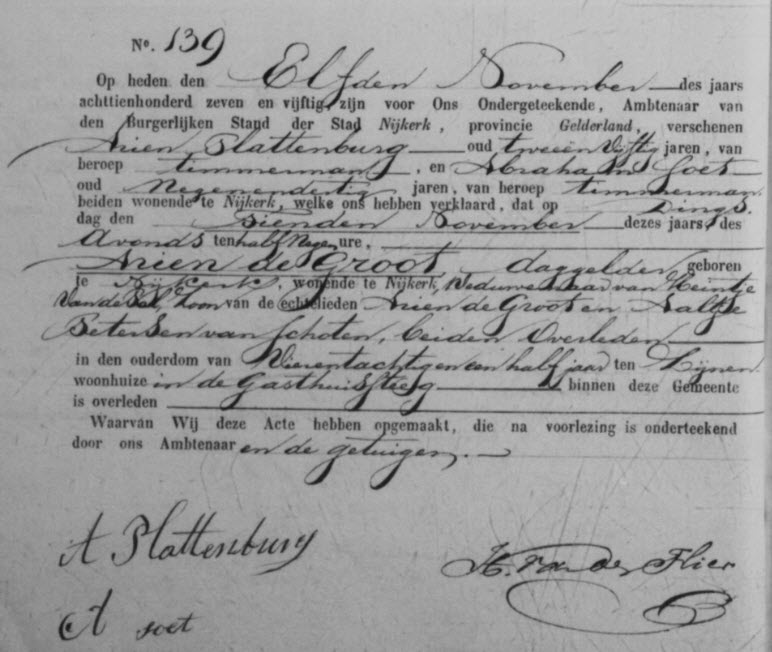 No. 139
Op heden den Elfden November des jaars
achttienhonderd zeven en vijftig, zijn voor Ons Ondergeteekende, Ambtenaar van
den Burgerlijken Stand der Stad Nijkerk, provincie Gelderland, verschenen
Arien Plattenburg oud tweeen Vijftig jaren, van
beroep timmerman, en Abraham Soet
oud Negenendertig jaren, van beroep timmerman
beiden wonende te Nijkerk, welke ons hebben verklaard, dat op Dings
dag den Tienden November dezes jaars, des
Avonds ten half Negen ure,
Arien de Groot daggelder geboren
te Nijkerk, wonende te Nijkerk, Weduwenaar van Heintje
van de Pol, Zoon van de echtelieden Arien de Groot en Aaltje
Petersen van Schoten, beiden Overleden
in den ouderdom van Vierentachtig en een half jaar ten Zijnen
woonhuize in de Gasthuissteeg binnen deze Gemeente
is overleden
Waarvan Wij deze Acte hebben opgemaakt, die na voorlezing is onderteekend
door ons Ambtenaar en de getuigen.
A Plattenburg
H. van der Flier
A soet